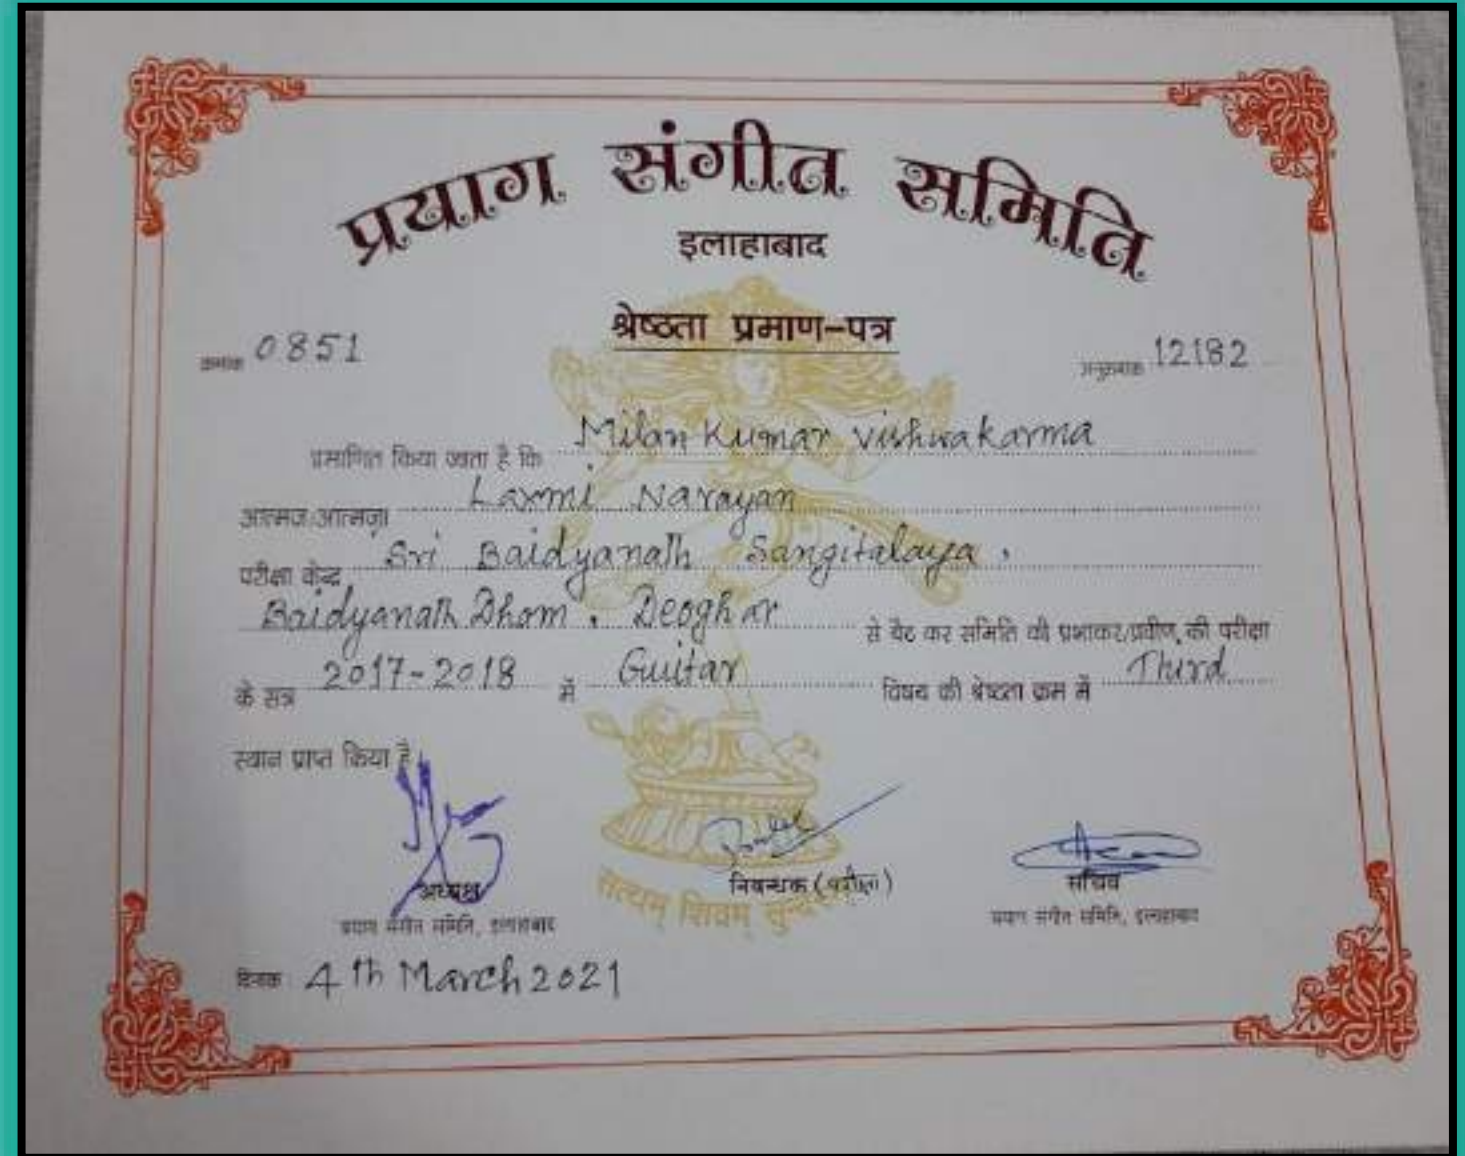 प्रयाग संगीत समिति
इलाहाबाद
श्रेष्ठता प्रमाण-पत्र
क्रमांक 0851 अनुक्रमांक 12182
प्रमाणित किया जाता है कि Milan Kumar Vishwakarma
आत्मज/आत्मजा Laxmi Narayan
परीक्षा केन्द्र Sri Baidyanath Sangitalaya,
Baidyanath Dham, Deoghar से बैठ कर समिति की प्रभाकर/प्रवीण की परीक्षा
के सत्र 2017-2018 में Guitar विषय की श्रेष्ठता क्रम में Third
स्थान प्राप्त किया है।
अध्यक्ष निबन्धक (परीक्षा) सचिव
प्रयाग संगीत समिति, इलाहाबाद सत्यम् शिवम् प्रयाग संगीत समिति, इलाहाबाद
दिनांक 4th March 2021